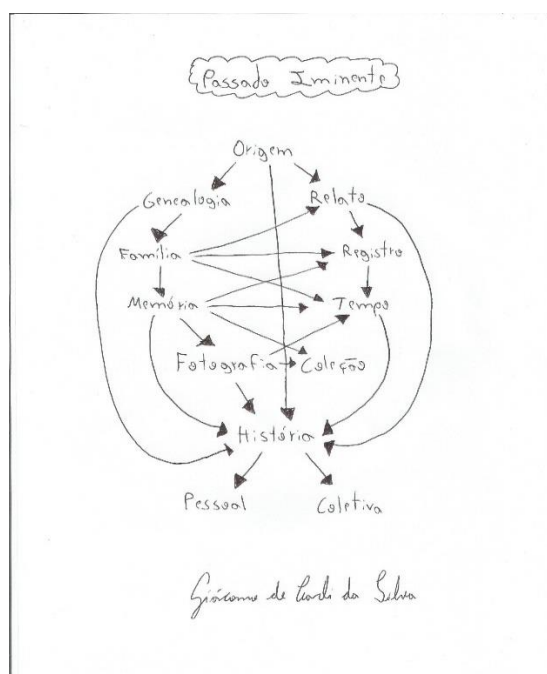 Passado Iminente
Origem
Genealogia Relato
Família Registro
Memória Tempo
Fotografia Coleção
História
Pessoal Coletiva
de da Silva